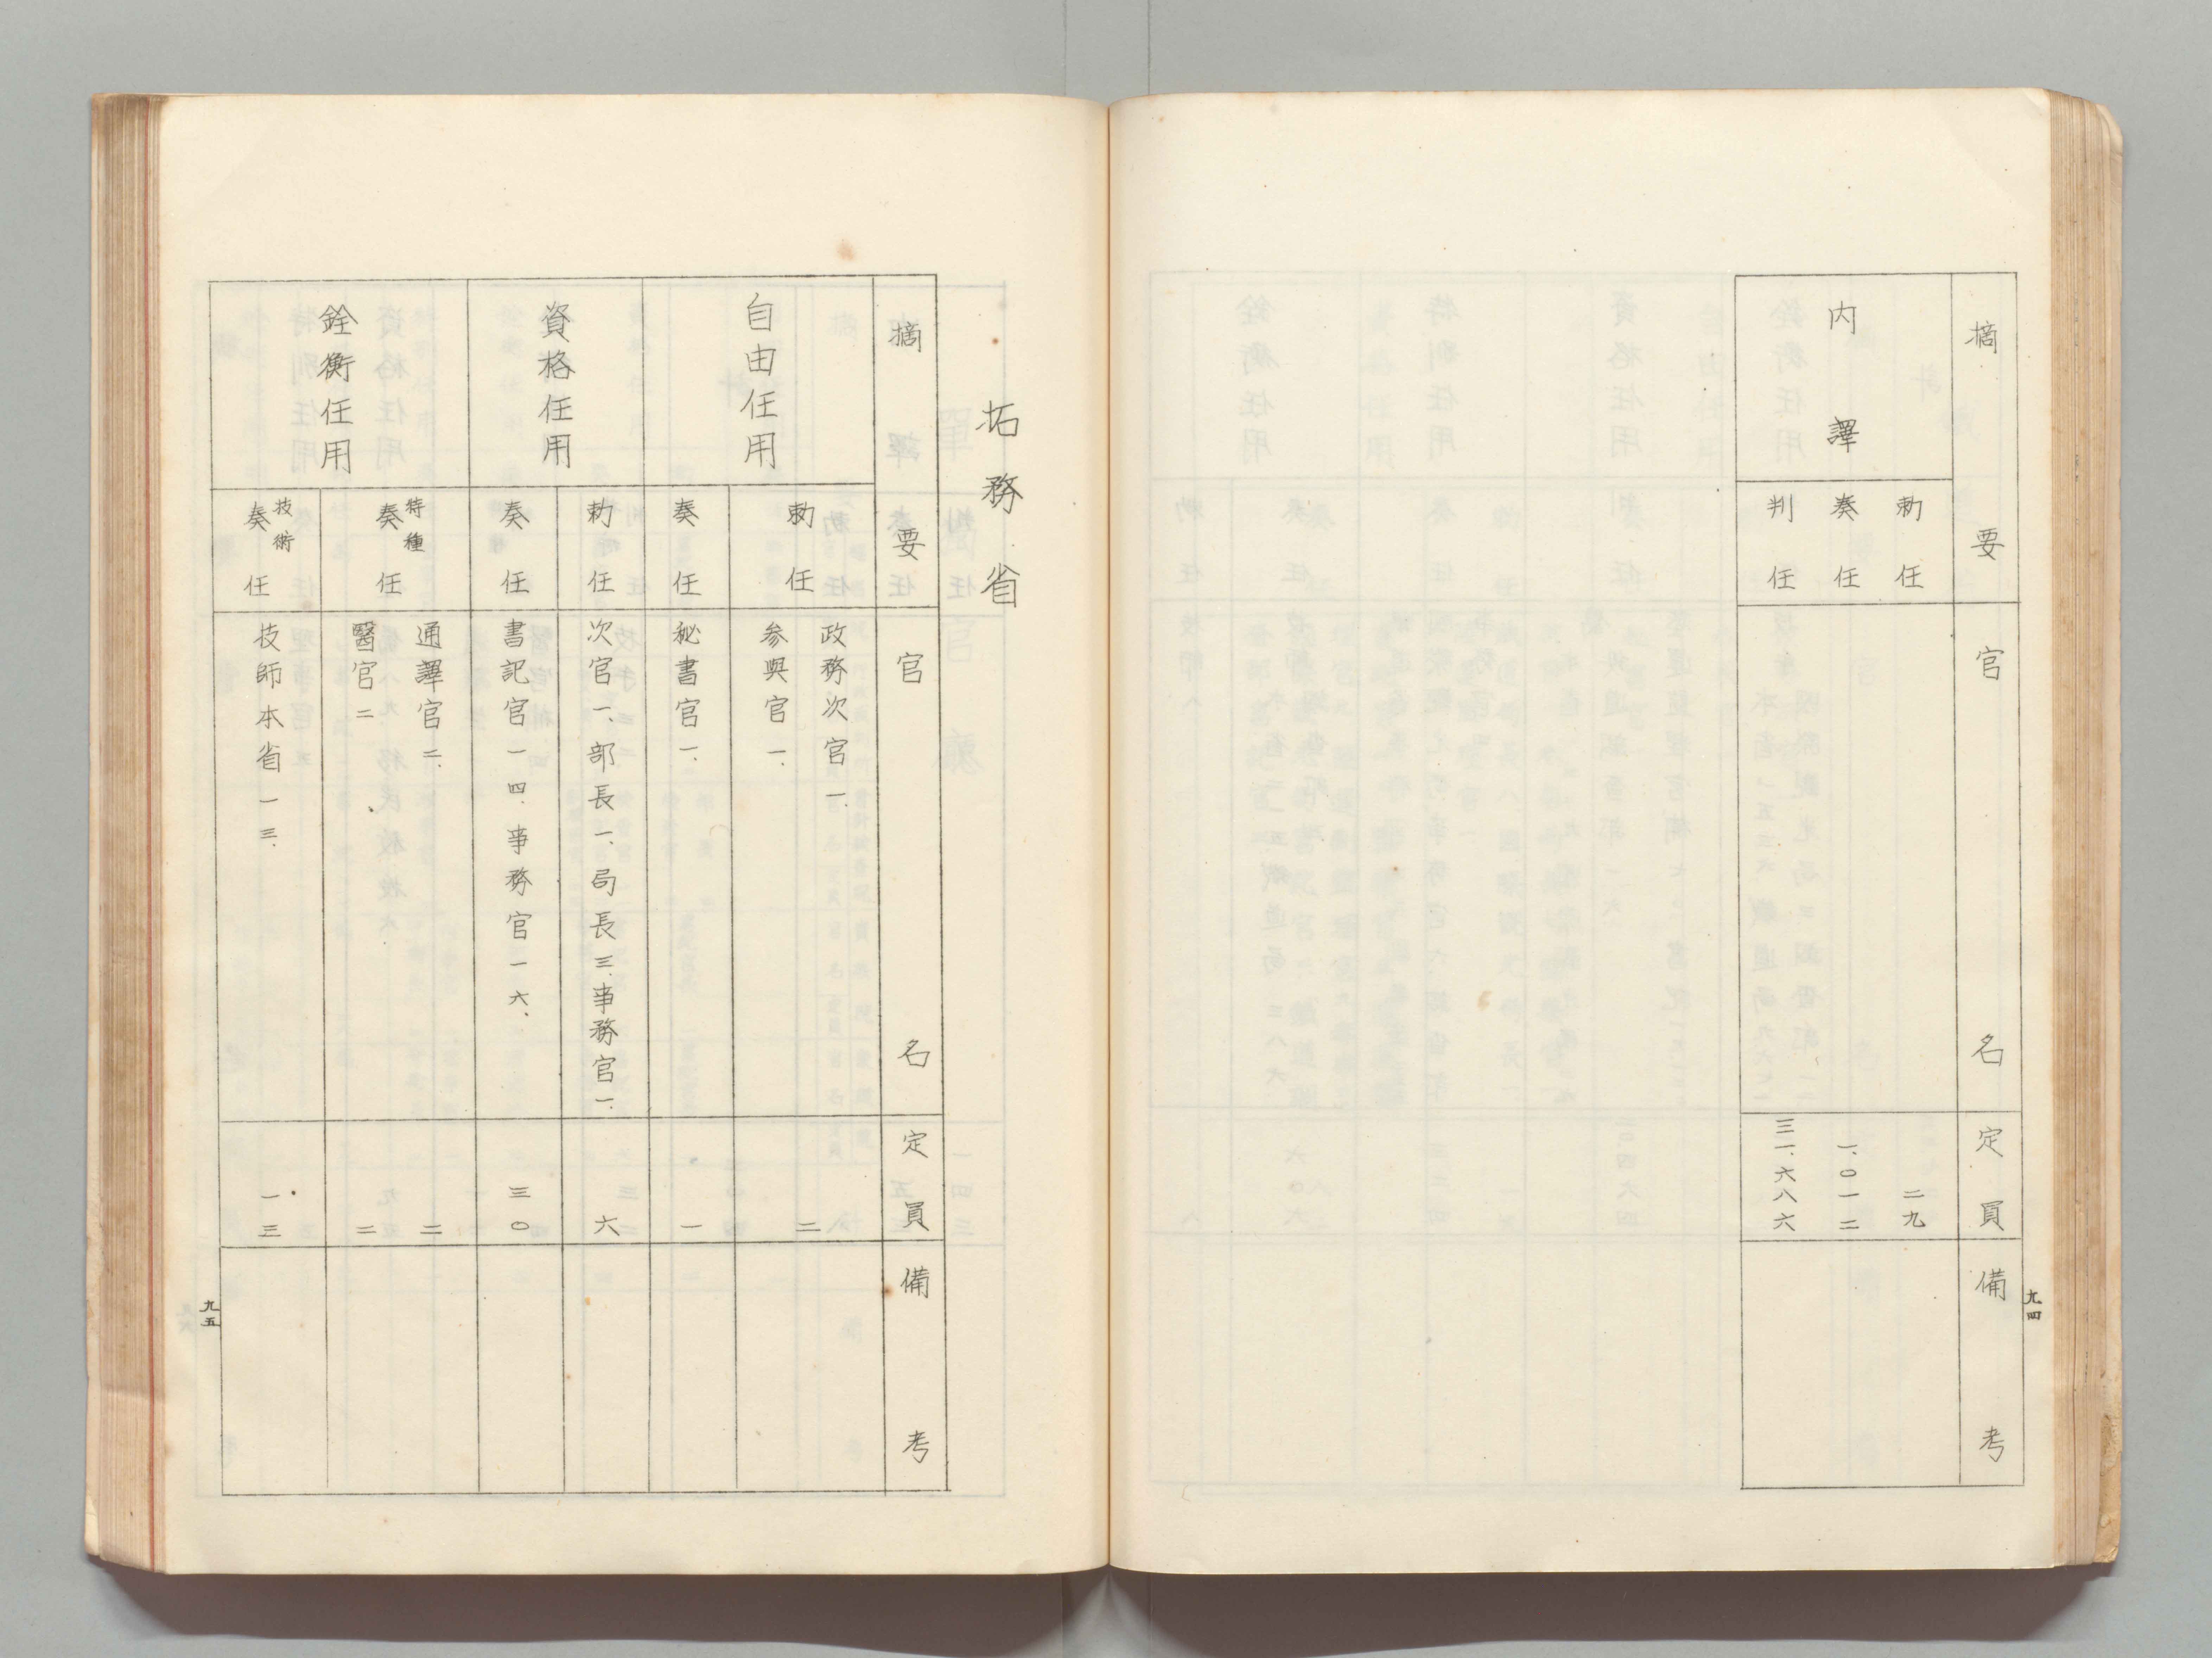 摘要
官名
定員
備考
内譯
勅任
二九
奏任
一、〇一二
判任
三一、六八六
九四
拓務省
摘要
官名
定員
備考
自由任用
勅任
政務次官一、
参與官一、
二
奏任
秘書官一、
一
資格任用
勅任
次官一、部長一、局長三、事務官一、
六
奏任
書記官一四、事務官一六、
三〇
銓衡任用
特種奏任
通譯官二、
二
醫官二
二
技術奏任
技師本省一三、
一三
九五